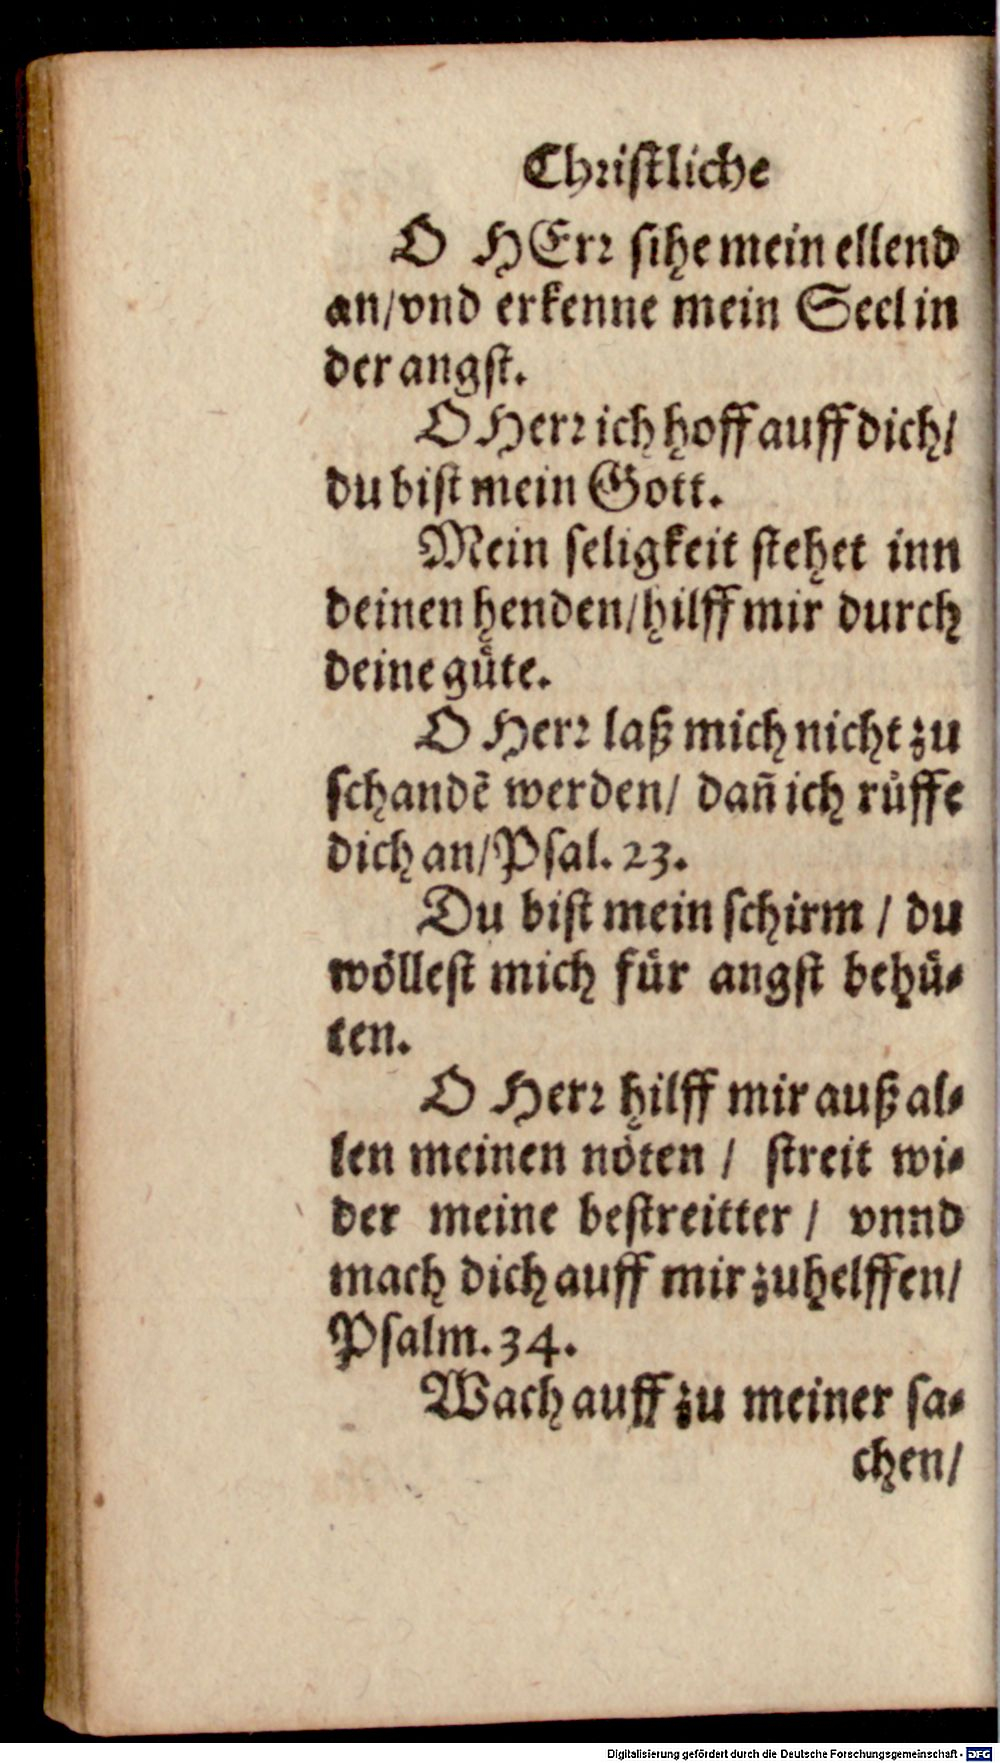 Chriſtliche
O HErꝛ ſihe mein ellend
an/vnd erkenne mein Seel in
der angſt.
O Herꝛ ich hoff auff dich/
du biſt mein Gott.
Mein ſeligkeit ſtehet inn
deinen henden/hilff mir durch
deine guͤte.
O Herꝛ laß mich nicht zu
ſchandẽ werden/ dañ ich ruͤffe
dich an/Pſal. 23.
Du biſt mein ſchirm / du
woͤlleſt mich fuͤr angſt behuͤ⸗
ten.
O Herꝛ hilff mir auß al⸗
len meinen noͤten / ſtreit wi⸗
der meine beſtreitter / vnnd
mach dich auff mir zuhelffen/
Pſalm. 34.
Wach auff zu meiner ſa⸗
chen/
Digitalisierung gefördert durch die Deutsche Forschungsgemeinschaft - DFG